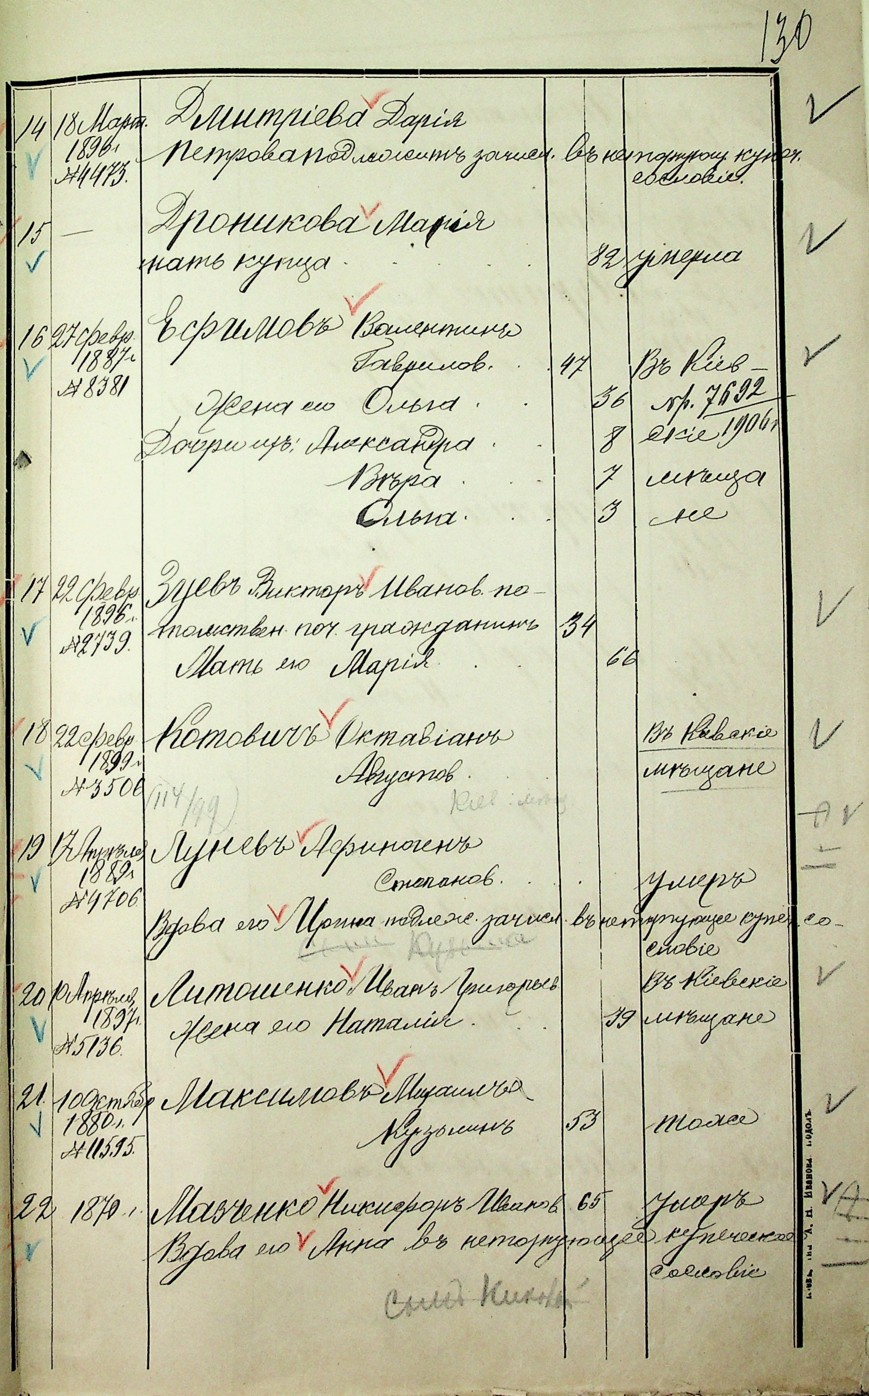 130
14 18 Март. Дмитріева Дарія
1896 г. Петрова подлежитъ зачисл. въ неторгующ. купеч.
№4473. сословіе.
15 — Дроникова Марія
мать купца 82 умерла
16 27 февр. Ефимовъ Валентинъ
1887 г. Гаврилов. 47 Въ Кіев-
№8381 Жена его Ольга 36 пр. 7692
Дочери ихъ: Александра 8 скіе 1906 г.
Вѣра 7 мѣща
Ольга 3 не
17 22 февр. Зуевъ Викторъ Иванов. по-
1896 г. томствен. поч. гражданинъ 34
№2739. Мать его Марія 66
18 22 февр. Котовичъ Октавіанъ Въ Кіевскіе
1899 г. Августов. мѣщане
№3506 (114/99)
19 Апрѣля Луневъ Афиногенъ
188 г. Степанов. умеръ
№4706 Вдова его Ирина подлеж. зачисл. въ неторгующее купеч. со-
словіе
20 Апрѣля Литошенко Иванъ Григорьев Въ Кіевскіе
1897 г. Жена его Наталія 39 мѣщане
№5136.
21. 10 Октября Максимовъ Михаилъ
1880 г. Кузьминъ 53 тоже
№11595.
22 1870 г. Мазченко Никифоръ Иванов 65 умеръ
Вдова его Анна въ неторгующее купеческое
сословіе